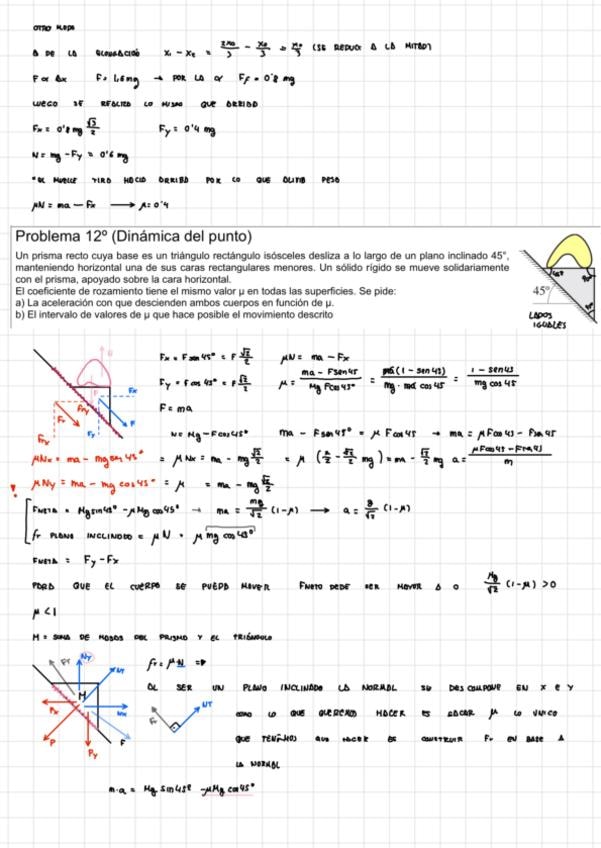 OTRO MODO
Δ DE LA ELONGACIÓN x₁ - x₂ = 2x₀/3 - x₀/3 = x₀/3 (SE REDUCE A LA MITAD)
F ∝ Δx F = 1,6mg → POR LO Ff = 0'8 mg
LUEGO SE REALIZA LO MISMO QUE ARRIBA
Fx = 0'8 mg √3/2 Fy = 0'4 mg
N = mg - Fy = 0'6 mg
*EL MUELLE TIRA HACIA ARRIBA POR LO QUE QUITA PESO
μN = ma - Fx → μ = 0'4
Problema 12º (Dinámica del punto)
Un prisma recto cuya base es un triángulo rectángulo isósceles desliza a lo largo de un plano inclinado 45º,
manteniendo horizontal una de sus caras rectangulares menores. Un sólido rígido se mueve solidariamente
con el prisma, apoyado sobre la cara horizontal.
El coeficiente de rozamiento tiene el mismo valor μ en todas las superficies. Se pide:
a) La aceleración con que descienden ambos cuerpos en función de μ.
b) El intervalo de valores de μ que hace posible el movimiento descrito
45°
LADOS
IGUALES
Fx = F sen 45° = F √2/2 μN = ma - Fx
Fy = F cos 45° = F √2/2 μ = (ma - F sen 45°)/(Mg F cos 45°) = ma(1 - sen 45)/(mg · ma cos 45) = (1 - sen 45)/(mg cos 45)
F = ma
N = Mg - F cos 45° ma - F sen 45° = μ F cos 45 → ma = μF cos 45 - F sen 45
μNx = ma - mg sen 45° = μNx = ma - mg √2/2
μNy = ma - mg cos 45° = μ = ma - mg √2/2
FNETA = Mg sin 45° - μMg cos 45° → ma = mg/√2 (1-μ) → a = g/√2 (1-μ)
fr PLANO INCLINADO = μN = μ mg cos 45°
FNETA = Fy - Fx
PARA QUE EL CUERPO SE PUEDA MOVER FNETA DEBE SER MAYOR A 0 Mg/√2 (1-μ) > 0
μ < 1
M = SUMA DE MASAS DEL PRISMA Y EL TRIÁNGULO
Fr Ny NT
fr = μN ⇒
M
Px Nx
P Py F
Fr NT
AL SER UN PLANO INCLINADO LA NORMAL SE DESCOMPONE EN X E Y
COMO LO QUE QUEREMOS HACER ES SACAR μ LO ÚNICO
QUE TENEMOS QUE HACER ES CONSTRUIR Fr EN BASE A
LA NORMAL
m·a = Mg sin 45° - μMg cos 45°